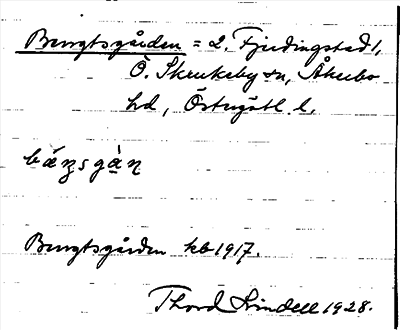 Bengtsgården = 2, Fjerdingstad 1,
Ö. Skrukeby sn, Åkerbo
hd, Östergötl. l.
Bengtsgården kb 1917.
Thord Lindell 1928.